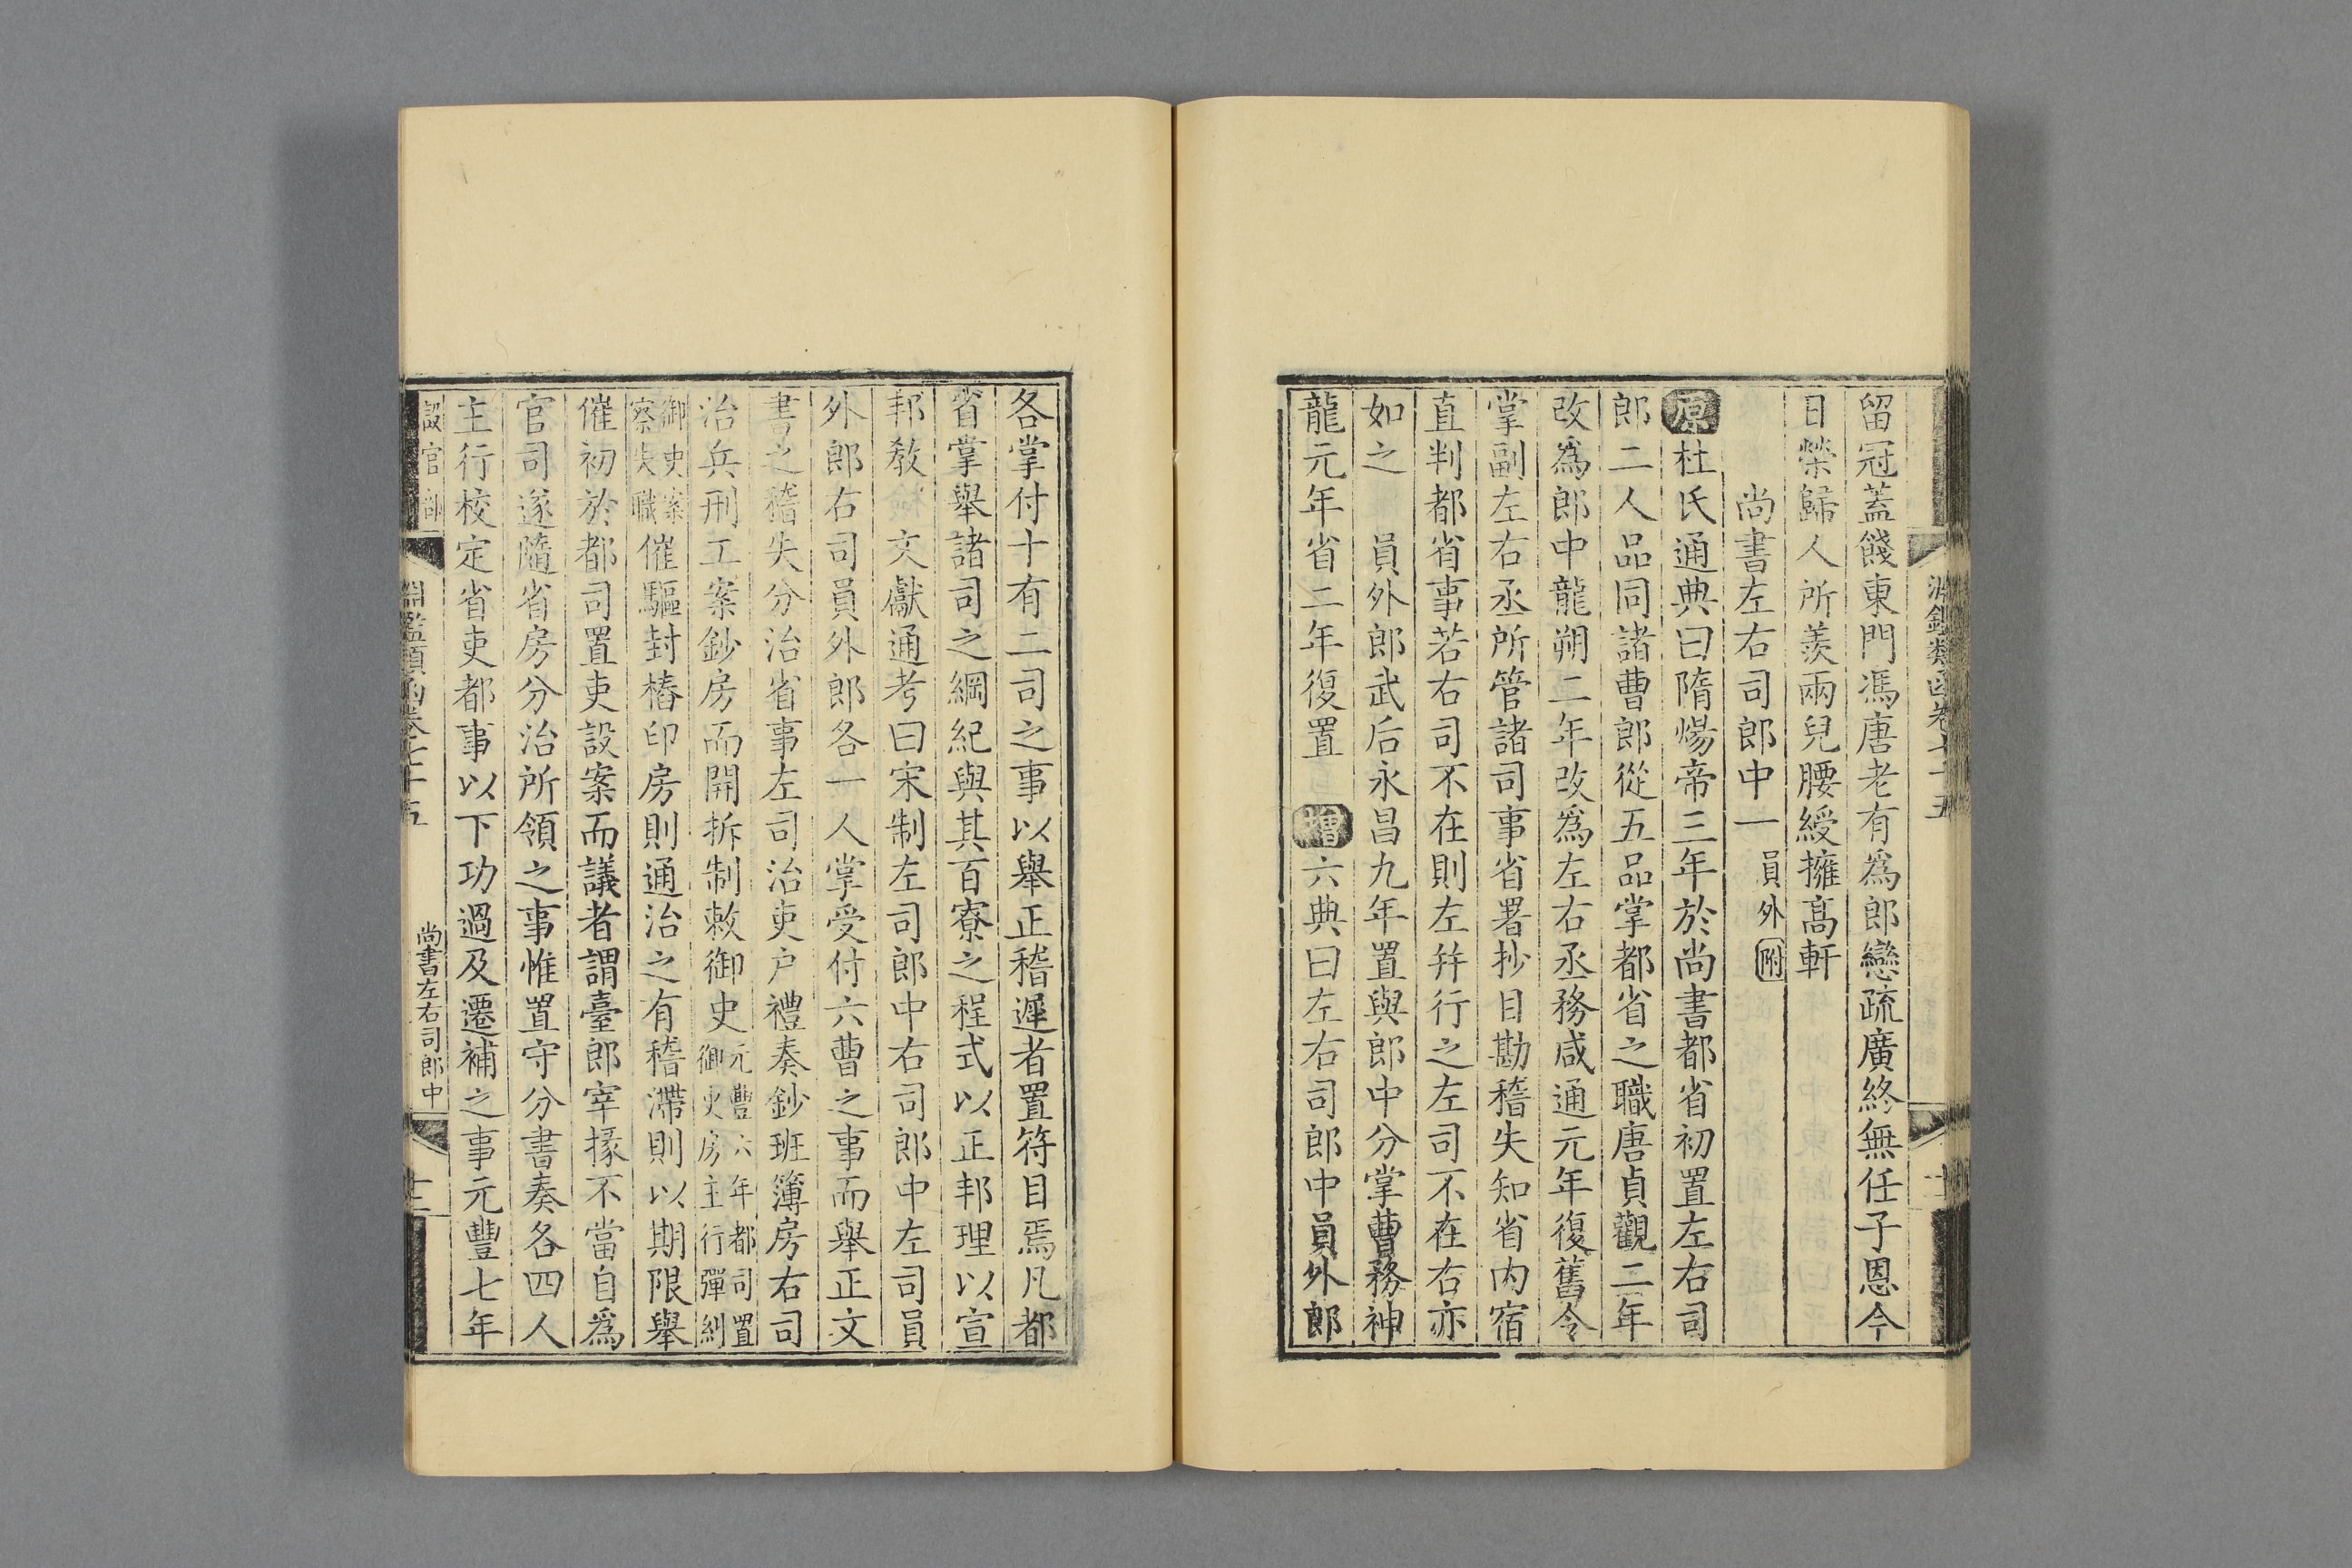 留冠蓋餞東門馮唐老有爲郎戀疏廣終無任子恩今
日榮歸人所羨兩兒腰綬擁高軒
尚書左右司郎中一 員外附
原杜氏通典曰隋煬帝三年於尚書都省初置左右司
郎二人品同諸曹郎從五品掌都省之職唐貞觀二年
改爲郎中龍朔二年改爲左右丞務咸通元年復舊令
掌副左右丞所管諸司事省署抄目勘稽失知省内宿
直判都省事若右司不在則左并行之左司不在右亦
如之 員外郎武后永昌九年置與郎中分掌曹務神
龍元年省二年復置 增六典曰左右司郎中員外郎
各掌付十有二司之事以舉正稽遲者置符目焉凡都
省掌舉諸司之綱紀與其百寮之程式以正邦理以宣
邦教 文獻通考曰宋制左司郎中右司郎中左司員
外郎右司員外郎各一人掌受付六曹之事而舉正文
書之稽失分治省事左司治吏户禮奏鈔班簿房右司
治兵刑工案鈔房而開拆制敕御史元豐六年都司置御史房主行彈糾
御史案察失職催驅封樁印房則通治之有稽滯則以期限舉
催初於都司置吏設案而議者謂臺郎宰掾不當自爲
官司遂隨省房分治所領之事惟置守分書奏各四人
主行校定省吏都事以下功過及遷補之事元豐七年
設官部 淵鑑類函卷七十五 尚書左右司郎中